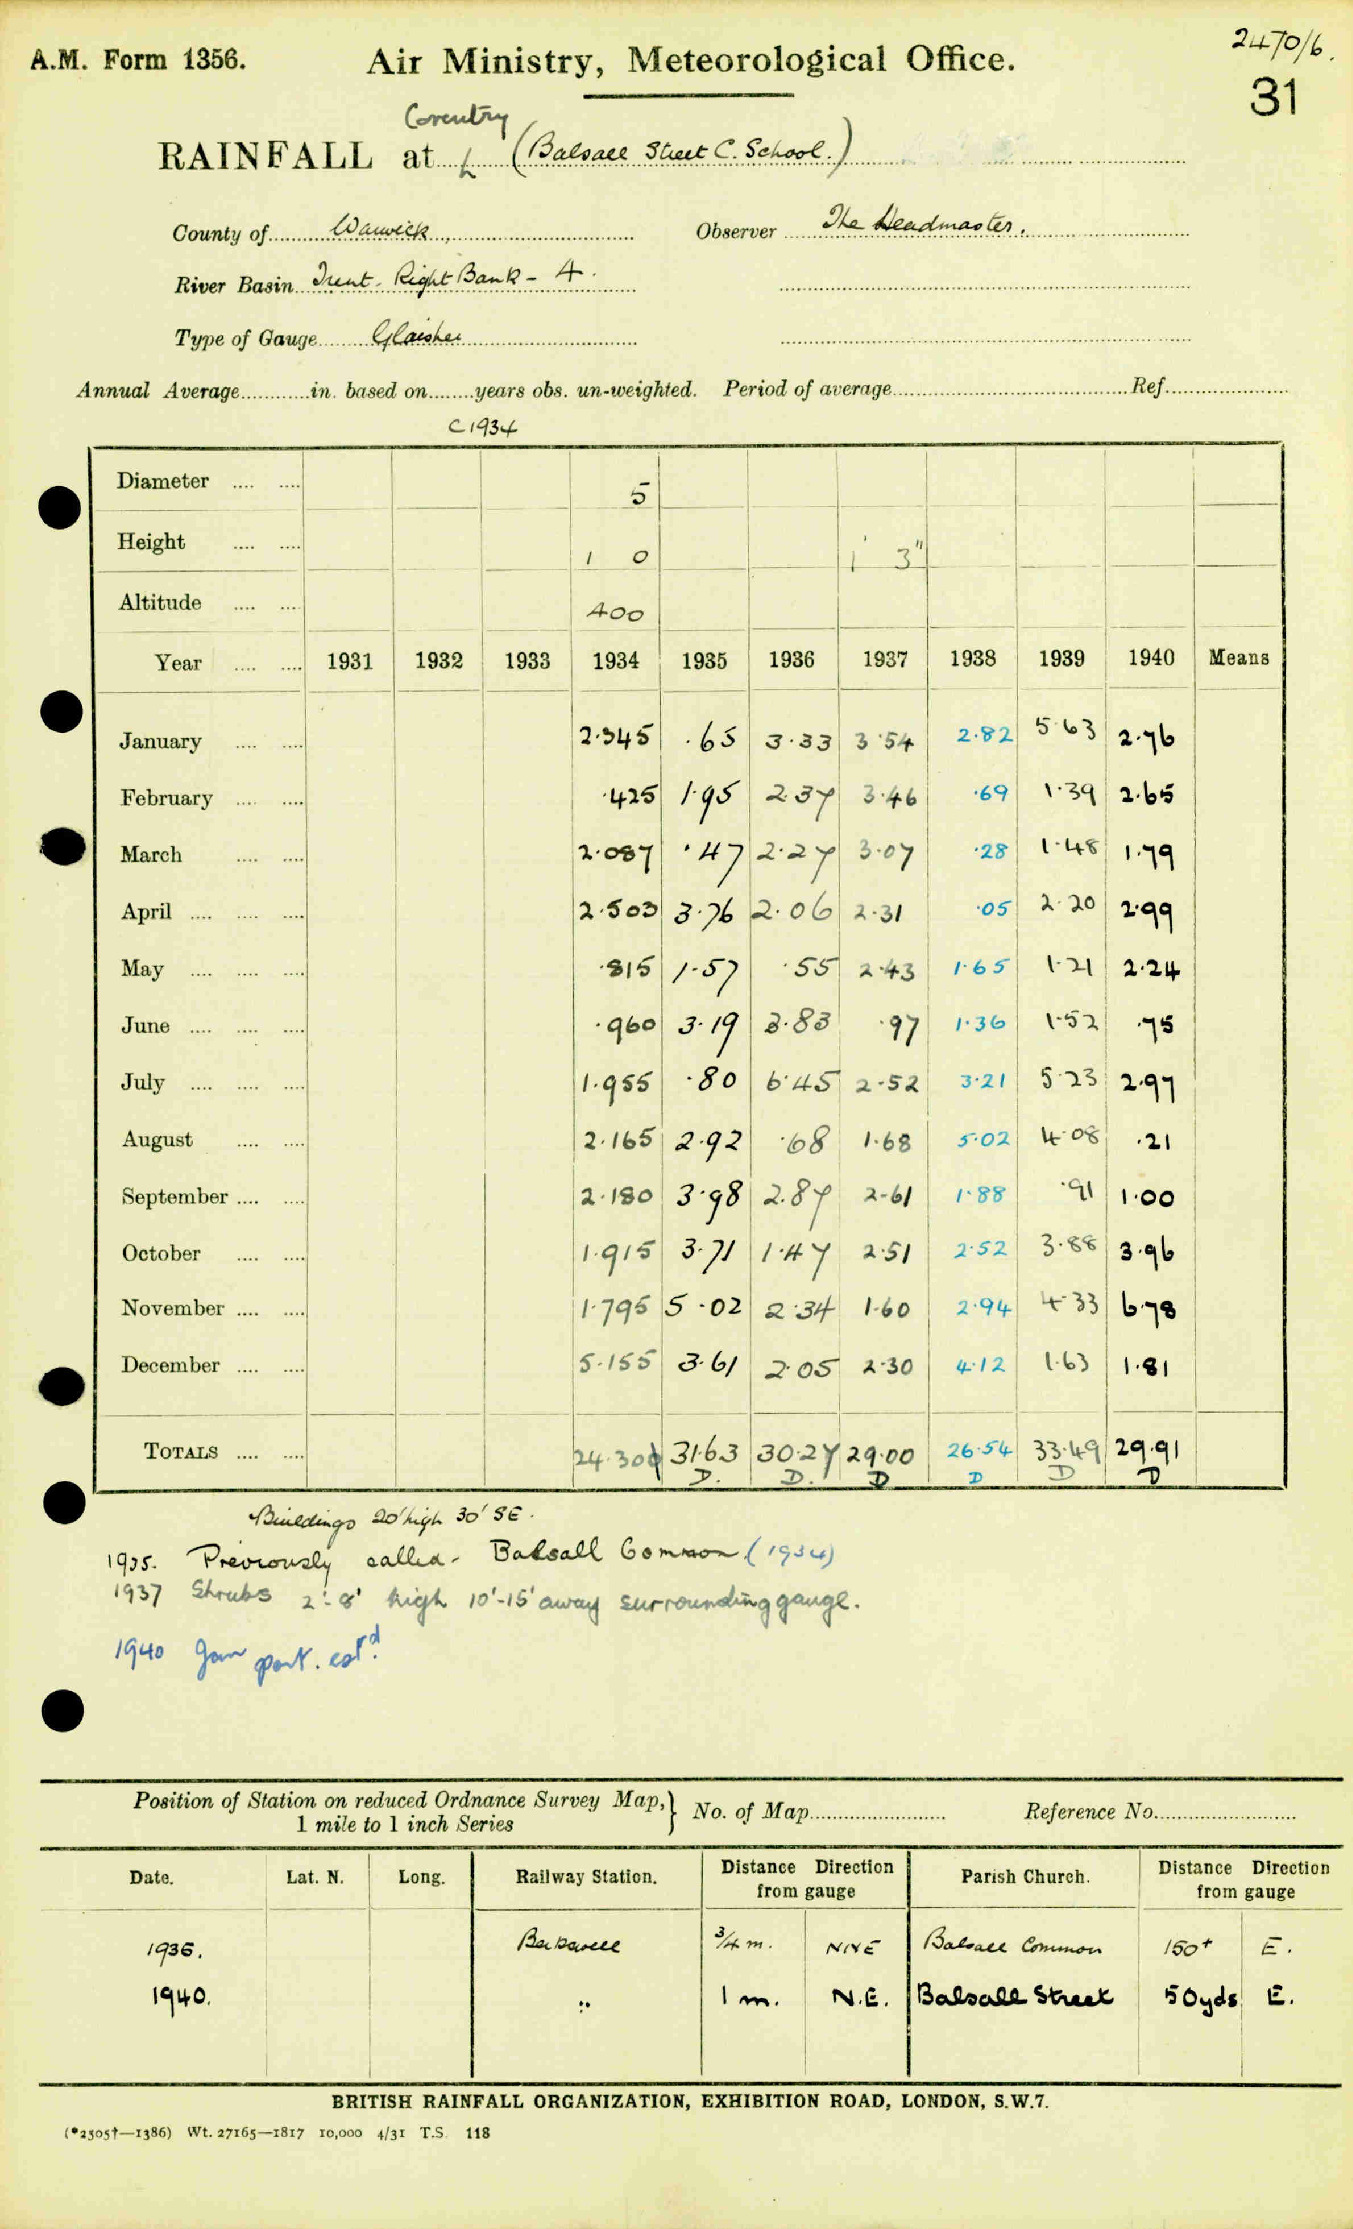 2470/6.
A.M. Form 1356. Air Ministry, Meteorological Office.
31
Coventry
RAINFALL at (Balsall Street C. School.)
County of Warwick, Observer The Headmaster.
River Basin Trent. Right Bank - 4.
Type of Gauge Glaisher
Annual Average in. based on years obs. un-weighted. Period of average Ref.
C1934
Diameter 5
Height 1 0 1' 3"
Altitude 400
Year 1931 1932 1933 1934 1935 1936 1937 1938 1939 1940 Means
January 2.345 .65 3.33 3.54 2.82 5.63 2.76
February .425 1.95 2.37 3.46 .69 1.39 2.65
March 2.087 .47 2.27 3.07 .28 1.48 1.79
April 2.503 3.76 2.06 2.31 .05 2.20 2.99
May .815 1.57 .55 2.43 1.65 1.21 2.24
June .960 3.19 3.83 .97 1.36 1.52 .75
July 1.955 .80 6.45 2.52 3.21 5.23 2.97
August 2.165 2.92 .68 1.68 5.02 4.08 .21
September 2.180 3.98 2.87 2.61 1.88 .91 1.00
October 1.915 3.71 1.47 2.51 2.52 3.88 3.96
November 1.795 5.02 2.34 1.60 2.94 4.33 6.78
December 5.155 3.61 2.05 2.30 4.12 1.63 1.81
TOTALS 24.300 31.63 30.27 29.00 26.54 33.49 29.91
D. D. D D D D
Buildings 20' high 30' SE.
1935. Previously called - Balsall Common. (1934)
1937 Shrubs 2'-8' high 10'-15' away surrounding gauge.
1940 Jan part. estd.
Position of Station on reduced Ordnance Survey Map, 1 mile to 1 inch Series No. of Map Reference No.
Date. Lat. N. Long. Railway Station. Distance Direction from gauge Parish Church. Distance Direction from gauge
1936. Berkswell 3/4 m. NNE Balsall Common 150+ E.
1940. " 1 m. N.E. Balsall Street 50yds E.
BRITISH RAINFALL ORGANIZATION, EXHIBITION ROAD, LONDON, S.W.7.
(*2505†—1386) Wt. 27165—1817 10,000 4/31 T.S. 118